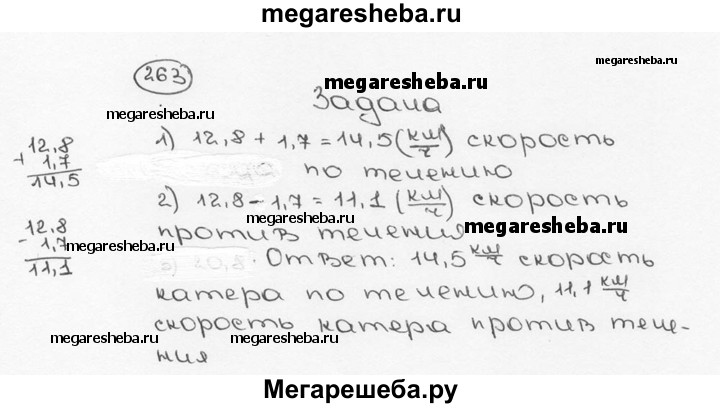 megaresheba.ru
megaresheba.ru
263
megaresheba.ru
Задача
megaresheba.ru
12,8
+ 1,7
14,5
1) 12,8 + 1,7 = 14,5 (км/ч) скорость
по течению
2) 12,8 - 1,7 = 11,1 (км/ч) скорость
megaresheba.ru
12,8
- 1,7
11,1
против течения
megaresheba.ru
megaresheba.ru
Ответ: 14,5 км/ч скорость
катера по течению, 11,1 км/ч
скорость катера против тече-
megaresheba.ru
megaresheba.ru
ния
Мегарешеба.ру